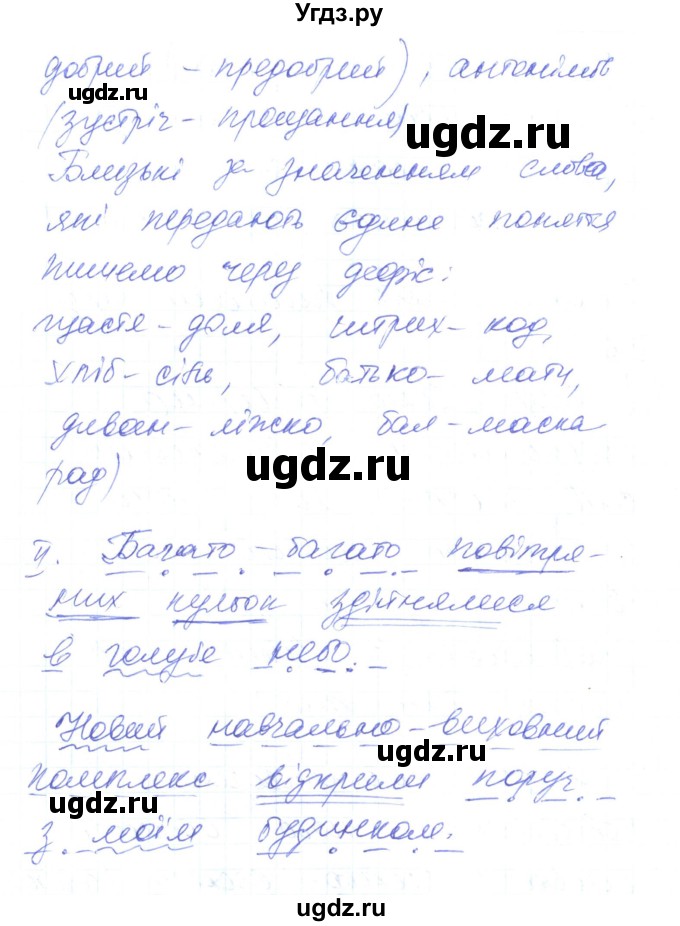 Угдз.ру
добрий - предобрий), антонімів
(зустріч - прощання)
Близькі за значенням слова,
які передають єдине поняття
пишемо через дефіс:
щастя-доля, штрих-код,
хліб-сіль, батько-мати,
диван-ліжко, бал-маска
рад)
II. Багато-багато повітря-
них кульок здійнялися
в голубе небо.
Новий навчально-виховний
комплекс відкрили поруч
з моїм будинком.
ugdz.ru
ugdz.ru
ugdz.ru
ugdz.ru
ugdz.ru
ugdz.ru
ugdz.ru
ugdz.ru
ugdz.ru
ugdz.ru